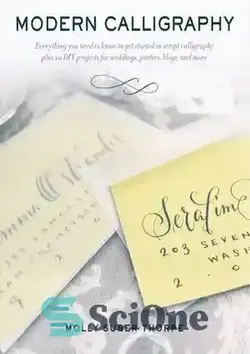 MODERN CALLIGRAPHY
Everything you need to know to get started in script calligraphy
plus 20 DIY projects for weddings, parties, blogs, and more
Serafine
203 SEVEN
WASH
2 . 0
SciOne
MOLLY SUBER THORPE